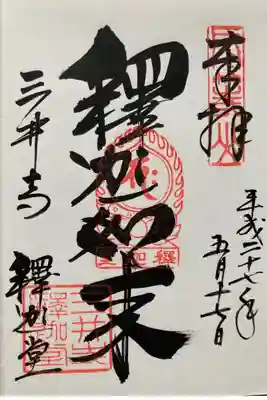 奉拝
平成二十七年
五月十七日
釋迦如来
三井寺
釋迦堂
三井寺
釋迦堂